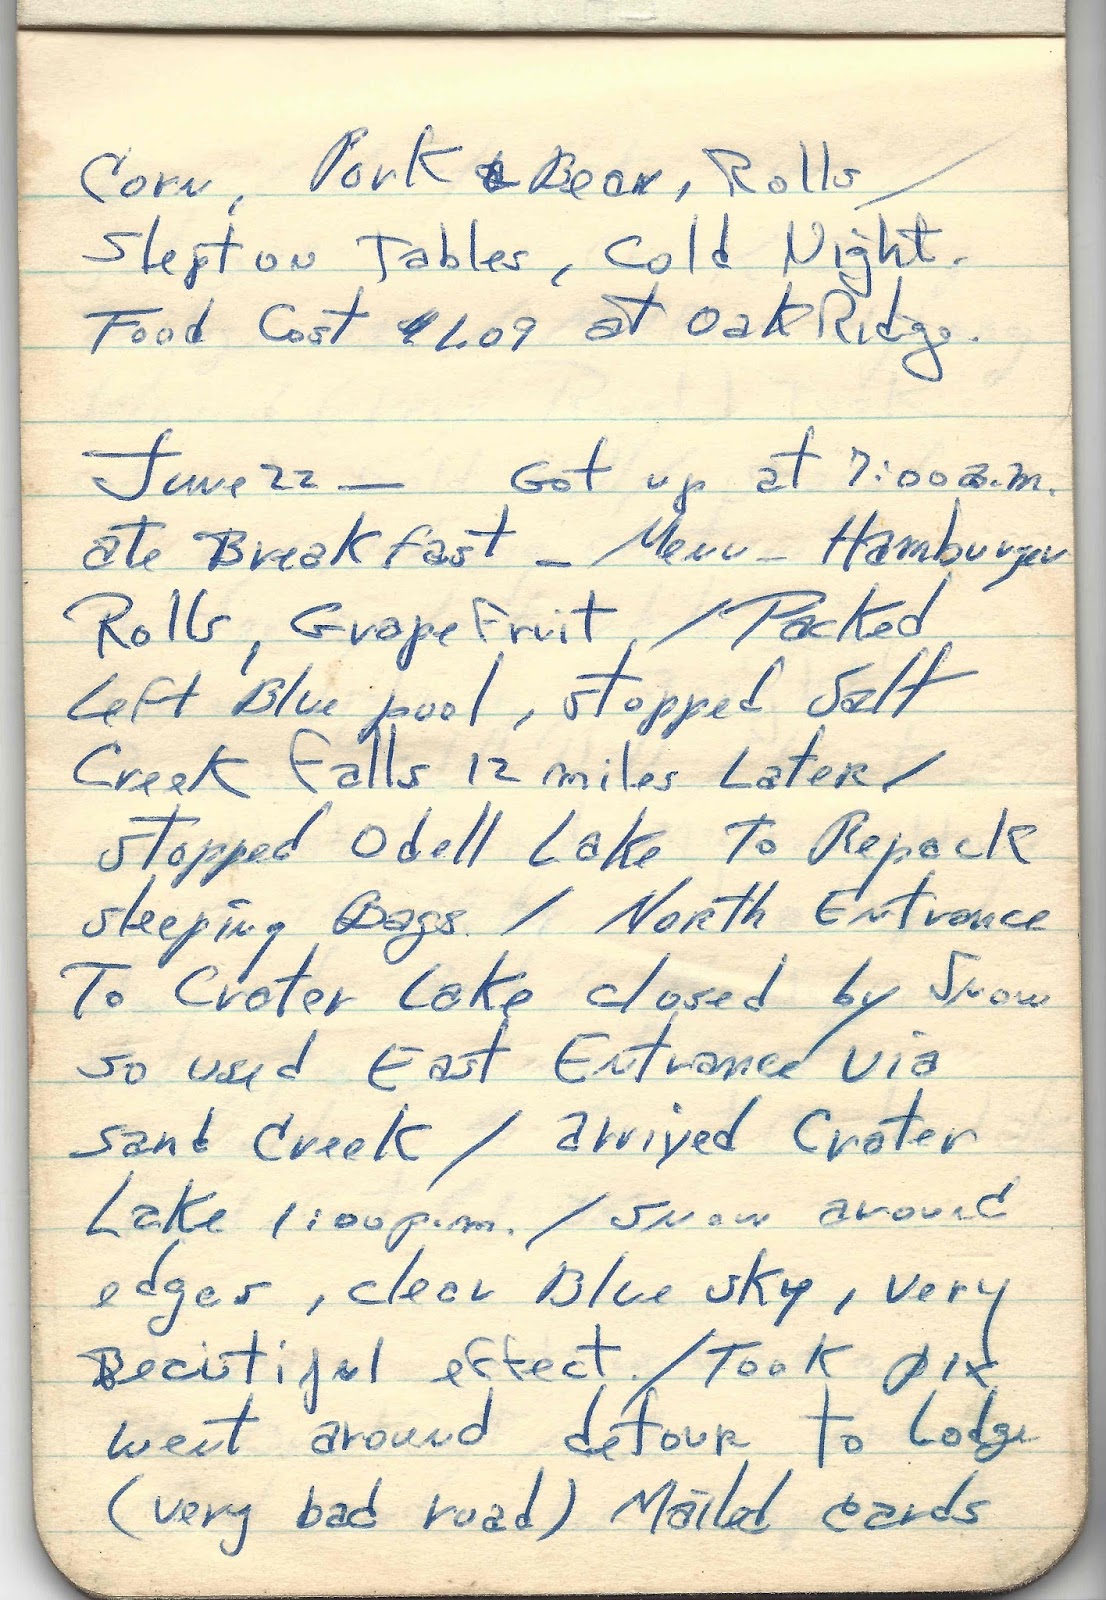 Corn, Pork & Bean, Rolls /
Slept on Tables, Cold Night.
Food Cost $1.09 at OakRidge.
June 22 — Got up at 7:00 a.m.
ate Breakfast - Menu - Hamburger
Rolls, GrapeFruit. / Packed
Left Blue pool, stopped Salt
Creek Falls 12 miles Later /
stopped Odell Lake To Repack
sleeping Bags. / North Entrance
To Crater Lake closed by Snow
so used East Entrance via
sand Creek / arrived Crater
Lake 1:00 p.m. / snow around
edges, clear Blue sky, very
Beautiful effect. / Took pix
went around detour to Lodge
(very bad road) Mailed cards